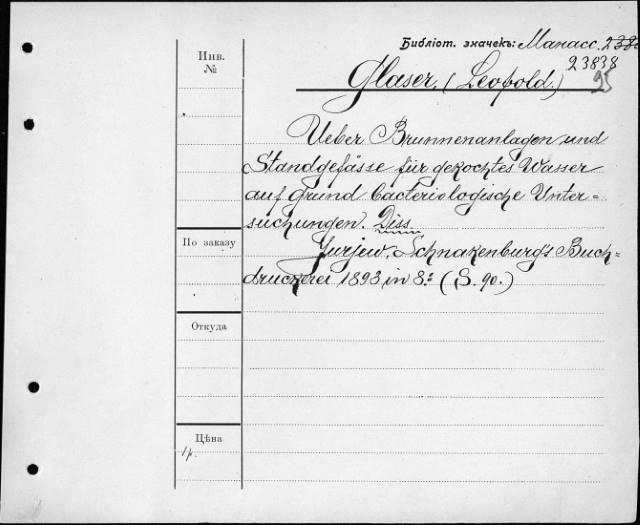 Библіот. значекъ: Манасс. 2383
23838
Инв.
№
Glaser, (Leopold.)
Ueber Brunnenanlagen und
Standgefässe für gekochtes Wasser
auf Grund bacteriologische Unter-
suchungen. Diss.
По заказу
Jurjew, Schnakenburg's Buch-
druckerei 1893 in 8º (S. 90.)
Откуда
Цѣна
1 р.